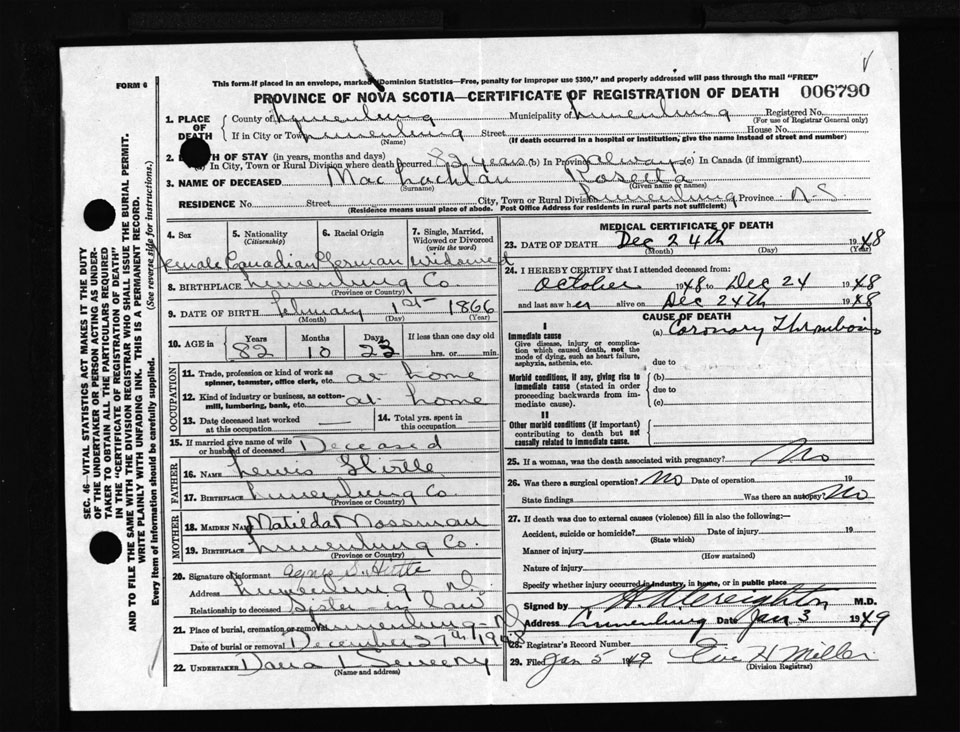 This form if placed in an envelope, marked "Dominion Statistics—Free, penalty for improper use $300," and properly addressed will pass through the mail "FREE"
FORM 6
PROVINCE OF NOVA SCOTIA—CERTIFICATE OF REGISTRATION OF DEATH 006790
1. PLACE OF DEATH County of Lunenburg Municipality of Lunenburg Registered No.
(For use of Registrar General only)
If in City or Town Lunenburg Street House No.
(Name) (If death occurred in a hospital or institution, give the name instead of street and number)
2. LENGTH OF STAY (in years, months and days)
(a) In City, Town or Rural Division where death occurred 82 years (b) In Province always (c) In Canada (if immigrant)
3. NAME OF DECEASED MacLachlan Rosetta
(Surname) (Given name or names)
RESIDENCE No. Street City, Town or Rural Division Lunenburg Province N-S
(Residence means usual place of abode. Post Office Address for residents in rural parts not sufficient)
4. Sex 5. Nationality (Citizenship) 6. Racial Origin 7. Single, Married, Widowed or Divorced (write the word)
Female Canadian German Widowed
8. BIRTHPLACE Lunenburg Co.
(Province or Country)
9. DATE OF BIRTH February 1st 1866
(Month) (Day) (Year)
10. AGE in Years Months Days If less than one day
82 10 23 hrs. or min.
OCCUPATION
11. Trade, profession or kind of work as spinner, teamster, office clerk, etc. at home
12. Kind of industry or business, as cotton-mill, lumbering, bank, etc. at home
13. Date deceased last worked at this occupation 14. Total yrs. spent in this occupation
15. If married give name of wife or husband of deceased Deceased
FATHER
16. NAME Lewis
17. BIRTHPLACE Lunenburg Co.
(Province or Country)
MOTHER
18. MAIDEN NAME Matilda Mossman
19. BIRTHPLACE Lunenburg Co.
(Province or Country)
20. Signature of informant Agnes S.
Address Lunenburg N.S.
Relationship to deceased Sister-in-law
21. Place of burial, cremation or removal Lunenburg N.S
Date of burial or removal December 27th 1948
22. UNDERTAKER
(Name and address)
MEDICAL CERTIFICATE OF DEATH
23. DATE OF DEATH Dec 24th 1948
(Month) (Day) (Year)
24. I HEREBY CERTIFY that I attended deceased from:
October 1948 to Dec 24 1948
and last saw her alive on Dec 24th 1948
CAUSE OF DEATH
I
Immediate cause (a) Coronary Thrombosis
Give disease, injury or complication which caused death, not the mode of dying, such as heart failure, asphyxia, asthenia, etc.
due to
Morbid conditions, if any, giving rise to immediate cause (stated in order proceeding backwards from immediate cause).
(b)
due to
(c)
II
Other morbid conditions (if important) contributing to death but not causally related to immediate cause.
25. If a woman, was the death associated with pregnancy? No
26. Was there a surgical operation? No Date of operation 19
State findings Was there an autopsy? No
27. If death was due to external causes (violence) fill in also the following:—
Accident, suicide or homicide? Date of injury 19
(State which)
Manner of injury
(How sustained)
Nature of injury
Specify whether injury occurred in industry, in home, or in public place
Signed by Creighton M.D.
Address Lunenburg Date Jan 3 1949
28. Registrar's Record Number
29. Filed Jan 5 1949 Miller
(Division Registrar)
SEC. 46—VITAL STATISTICS ACT MAKES IT THE DUTY
OF THE UNDERTAKER OR PERSON ACTING AS UNDER-
TAKER TO OBTAIN ALL THE PARTICULARS REQUIRED
IN THE "CERTIFICATE OF REGISTRATION OF DEATH"
AND TO FILE THE SAME WITH THE DIVISION REGISTRAR WHO SHALL ISSUE THE BURIAL PERMIT.
WRITE PLAINLY WITH UNFADING INK. THIS IS A PERMANENT RECORD.
Every item of information should be carefully supplied. (See reverse side for instructions.)